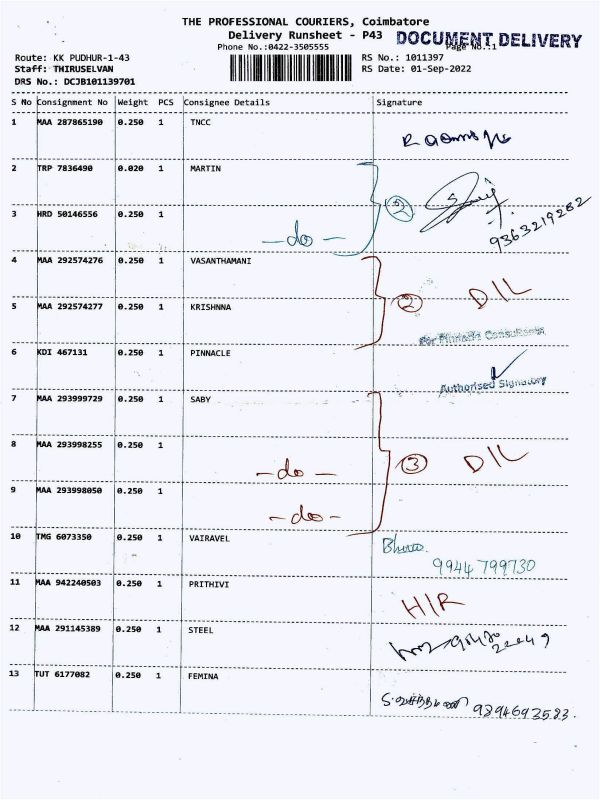 THE PROFESSIONAL COURIERS, Coimbatore
Delivery Runsheet - P43
DOCUMENT DELIVERY
Phone No.:0422-3505555
Page No.:1
Route: KK PUDHUR-1-43
RS No.: 1011397
Staff: THIRUSELVAN
RS Date: 01-Sep-2022
DRS No.: DCJB101139701
S No Consignment No Weight PCS Consignee Details Signature
1 MAA 287865190 0.250 1 TNCC
2 TRP 7836490 0.020 1 MARTIN
2
3 HRD 50146556 0.250 1
-do- 9363219262
4 MAA 292574276 0.250 1 VASANTHAMANI
2 D/L
5 MAA 292574277 0.250 1 KRISHNNA
For Pinnacle Consultants
6 KDI 467131 0.250 1 PINNACLE
Authorised Signatory
7 MAA 293999729 0.250 1 SABY
8 MAA 293998255 0.250 1
-do- 3 D/L
9 MAA 293998050 0.250 1
-do-
10 TMG 6073350 0.250 1 VAIRAVEL
9944 799730
11 MAA 942240503 0.250 1 PRITHIVI
H/R
12 MAA 291145389 0.250 1 STEEL
13 TUT 6177082 0.250 1 FEMINA
9894693583.